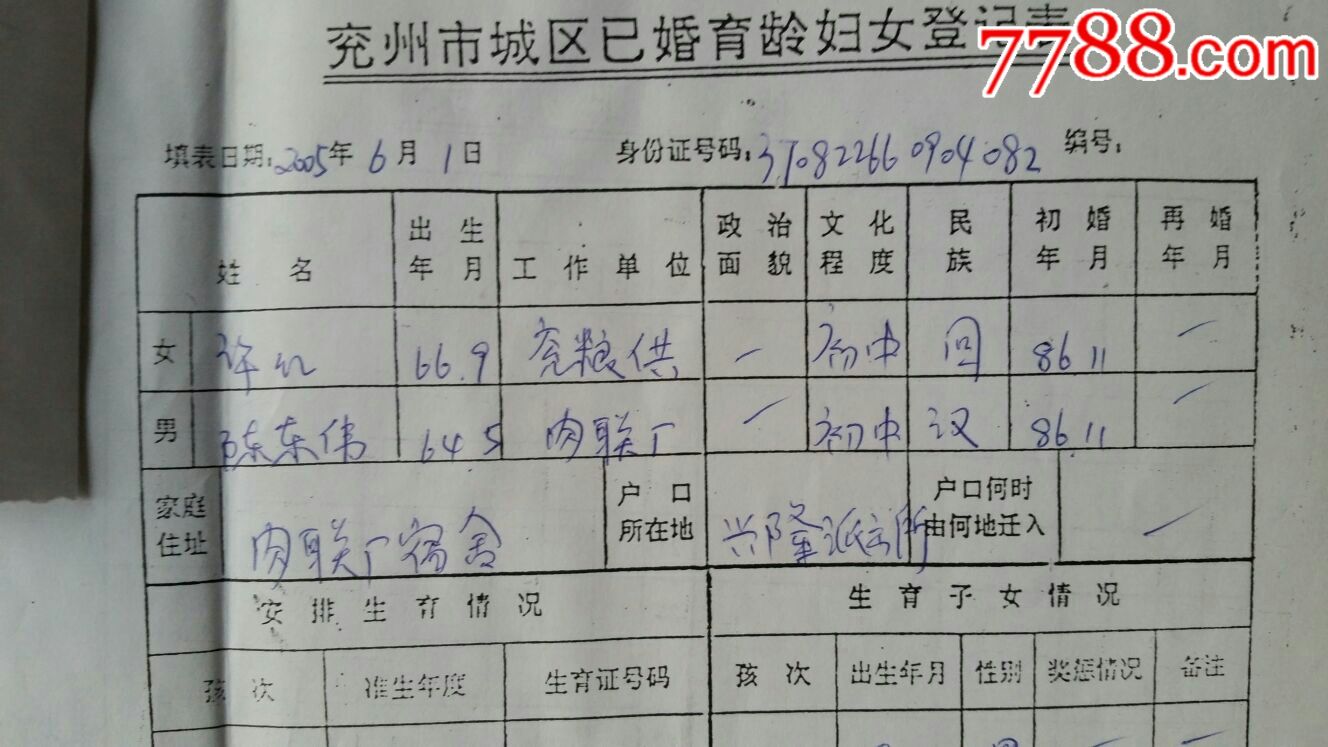 兖州市城区已婚育龄妇女登记表
7788.com
填表日期:2005年 6月 1日 身份证号码:370822660904082 编号:
姓名 出生年月 工作单位 政治面貌 文化程度 民族 初婚年月 再婚年月
女 许红 66.9 兖粮供 一 初中 回 86 11 一
男 陈东伟 64 5 肉联厂 一 初中 汉 86 11 一
家庭住址 肉联厂宿舍 户口所在地 兴隆派出所 户口何时由何地迁入 一
安排生育情况 生育子女情况
孩次 准生年度 生育证号码 孩次 出生年月 性别 奖惩情况 备注